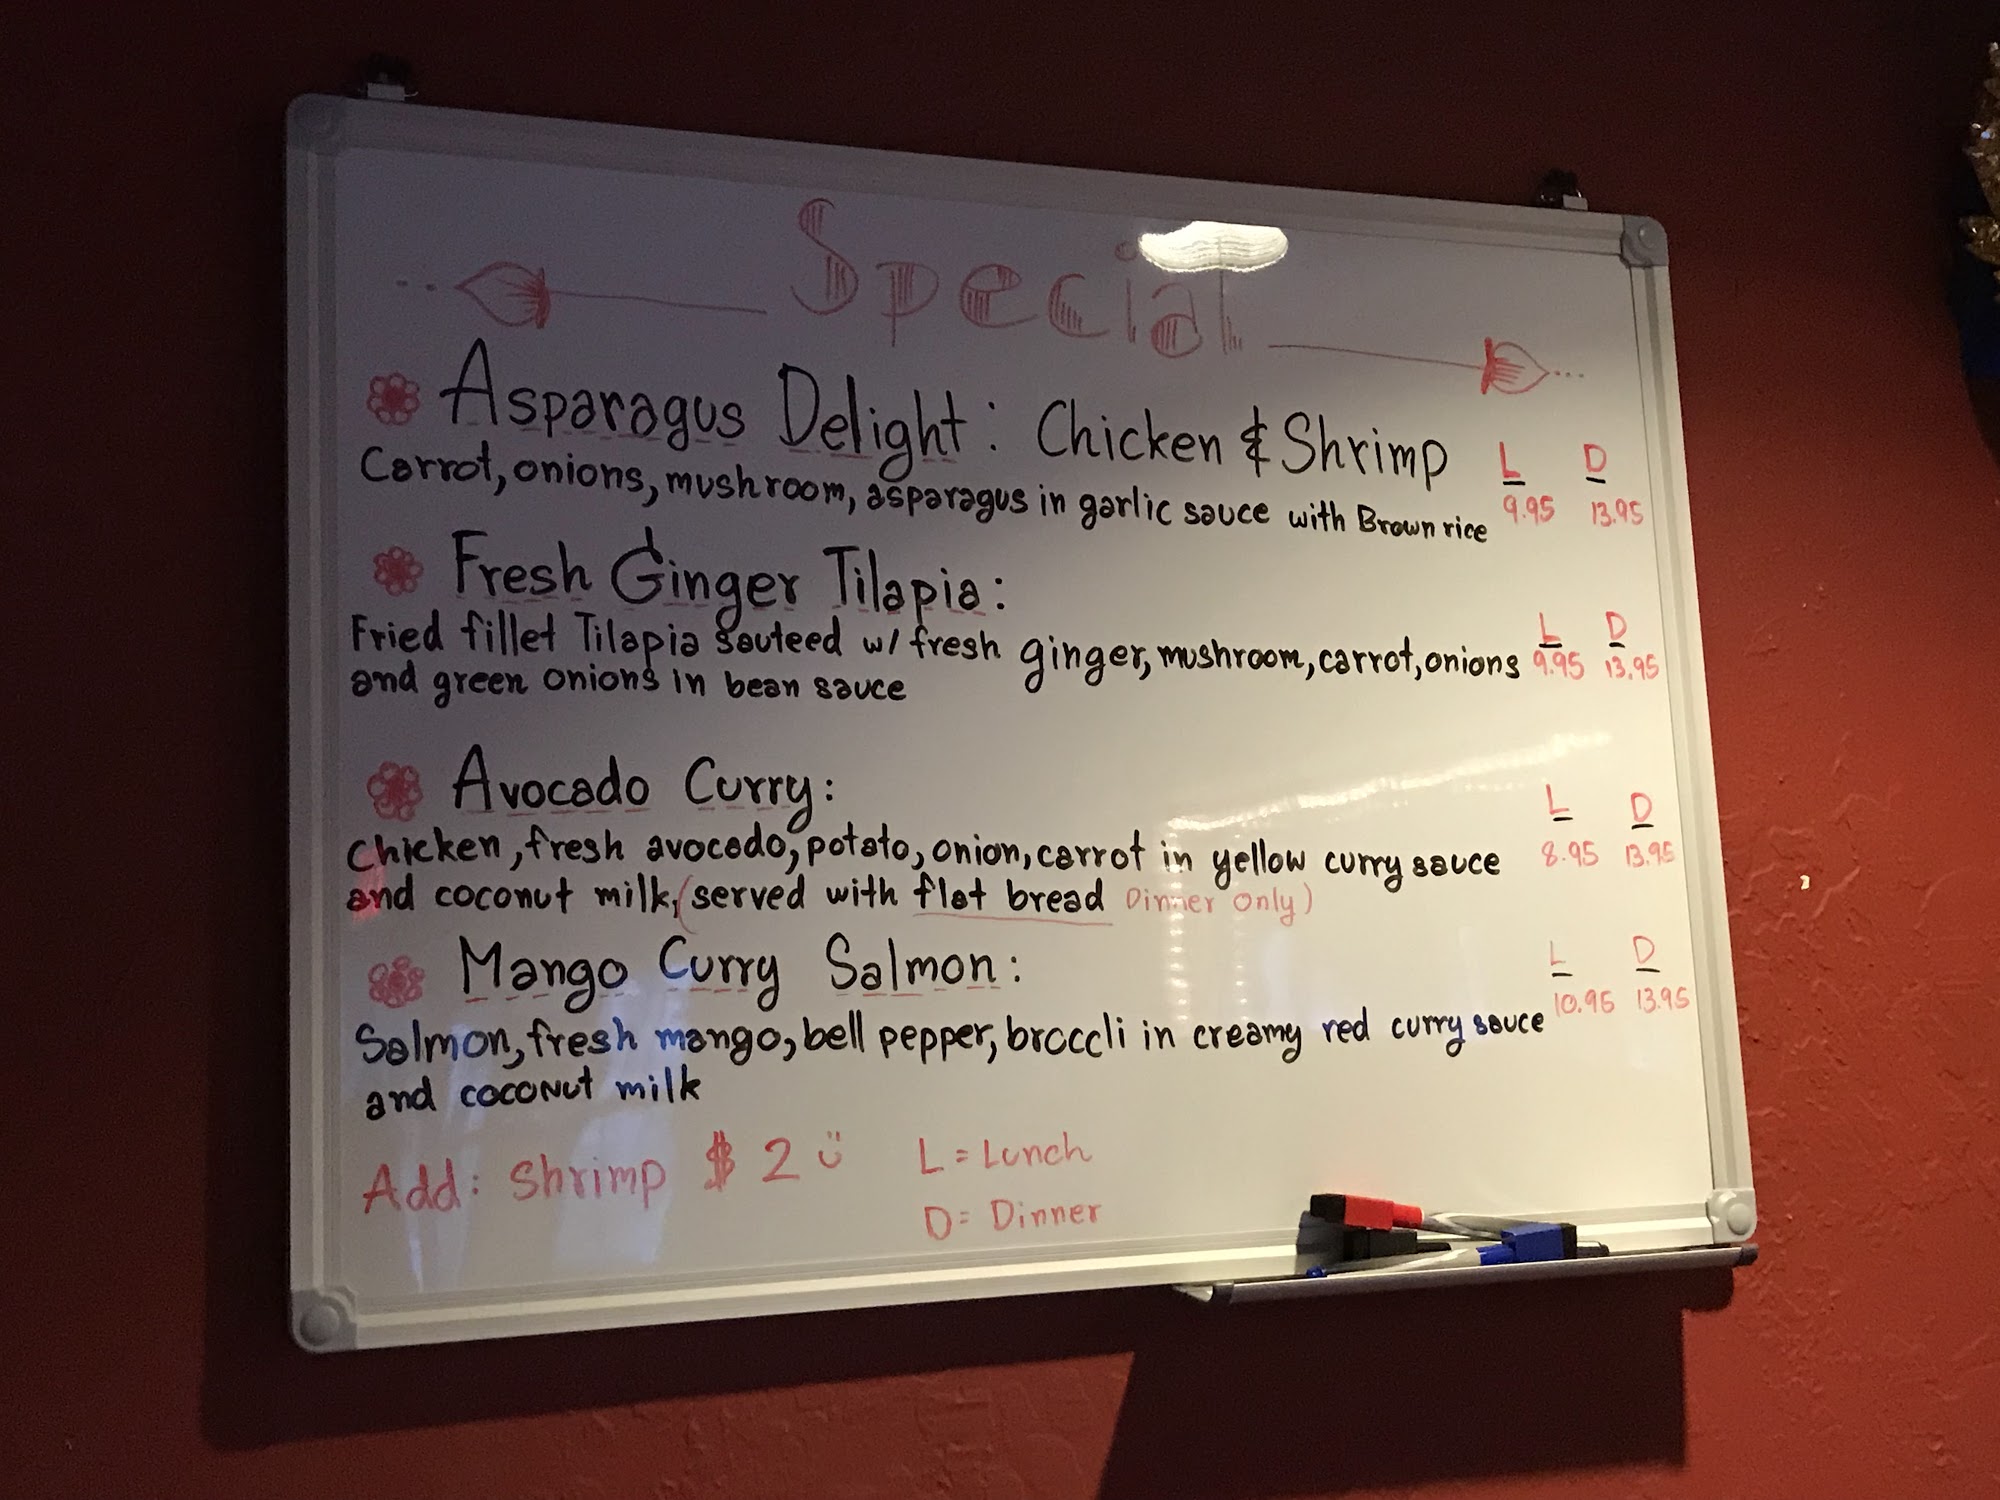 Special
Asparagus Delight: Chicken & Shrimp
L D
Carrot, onions, mushroom, asparagus in garlic sauce with Brown rice 9.95 13.95
Fresh Ginger Tilapia:
L D
Fried fillet Tilapia sauteed w/ fresh ginger, mushroom, carrot, onions 9.95 13.95
and green onions in bean sauce
Avocado Curry:
L D
Chicken, fresh avocado, potato, onion, carrot in yellow curry sauce 8.95 13.95
and coconut milk, (served with flat bread Dinner only)
Mango Curry Salmon:
L D
Salmon, fresh mango, bell pepper, broccli in creamy red curry sauce 10.95 13.95
and coconut milk
Add: Shrimp $ 2 L = Lunch
D = Dinner